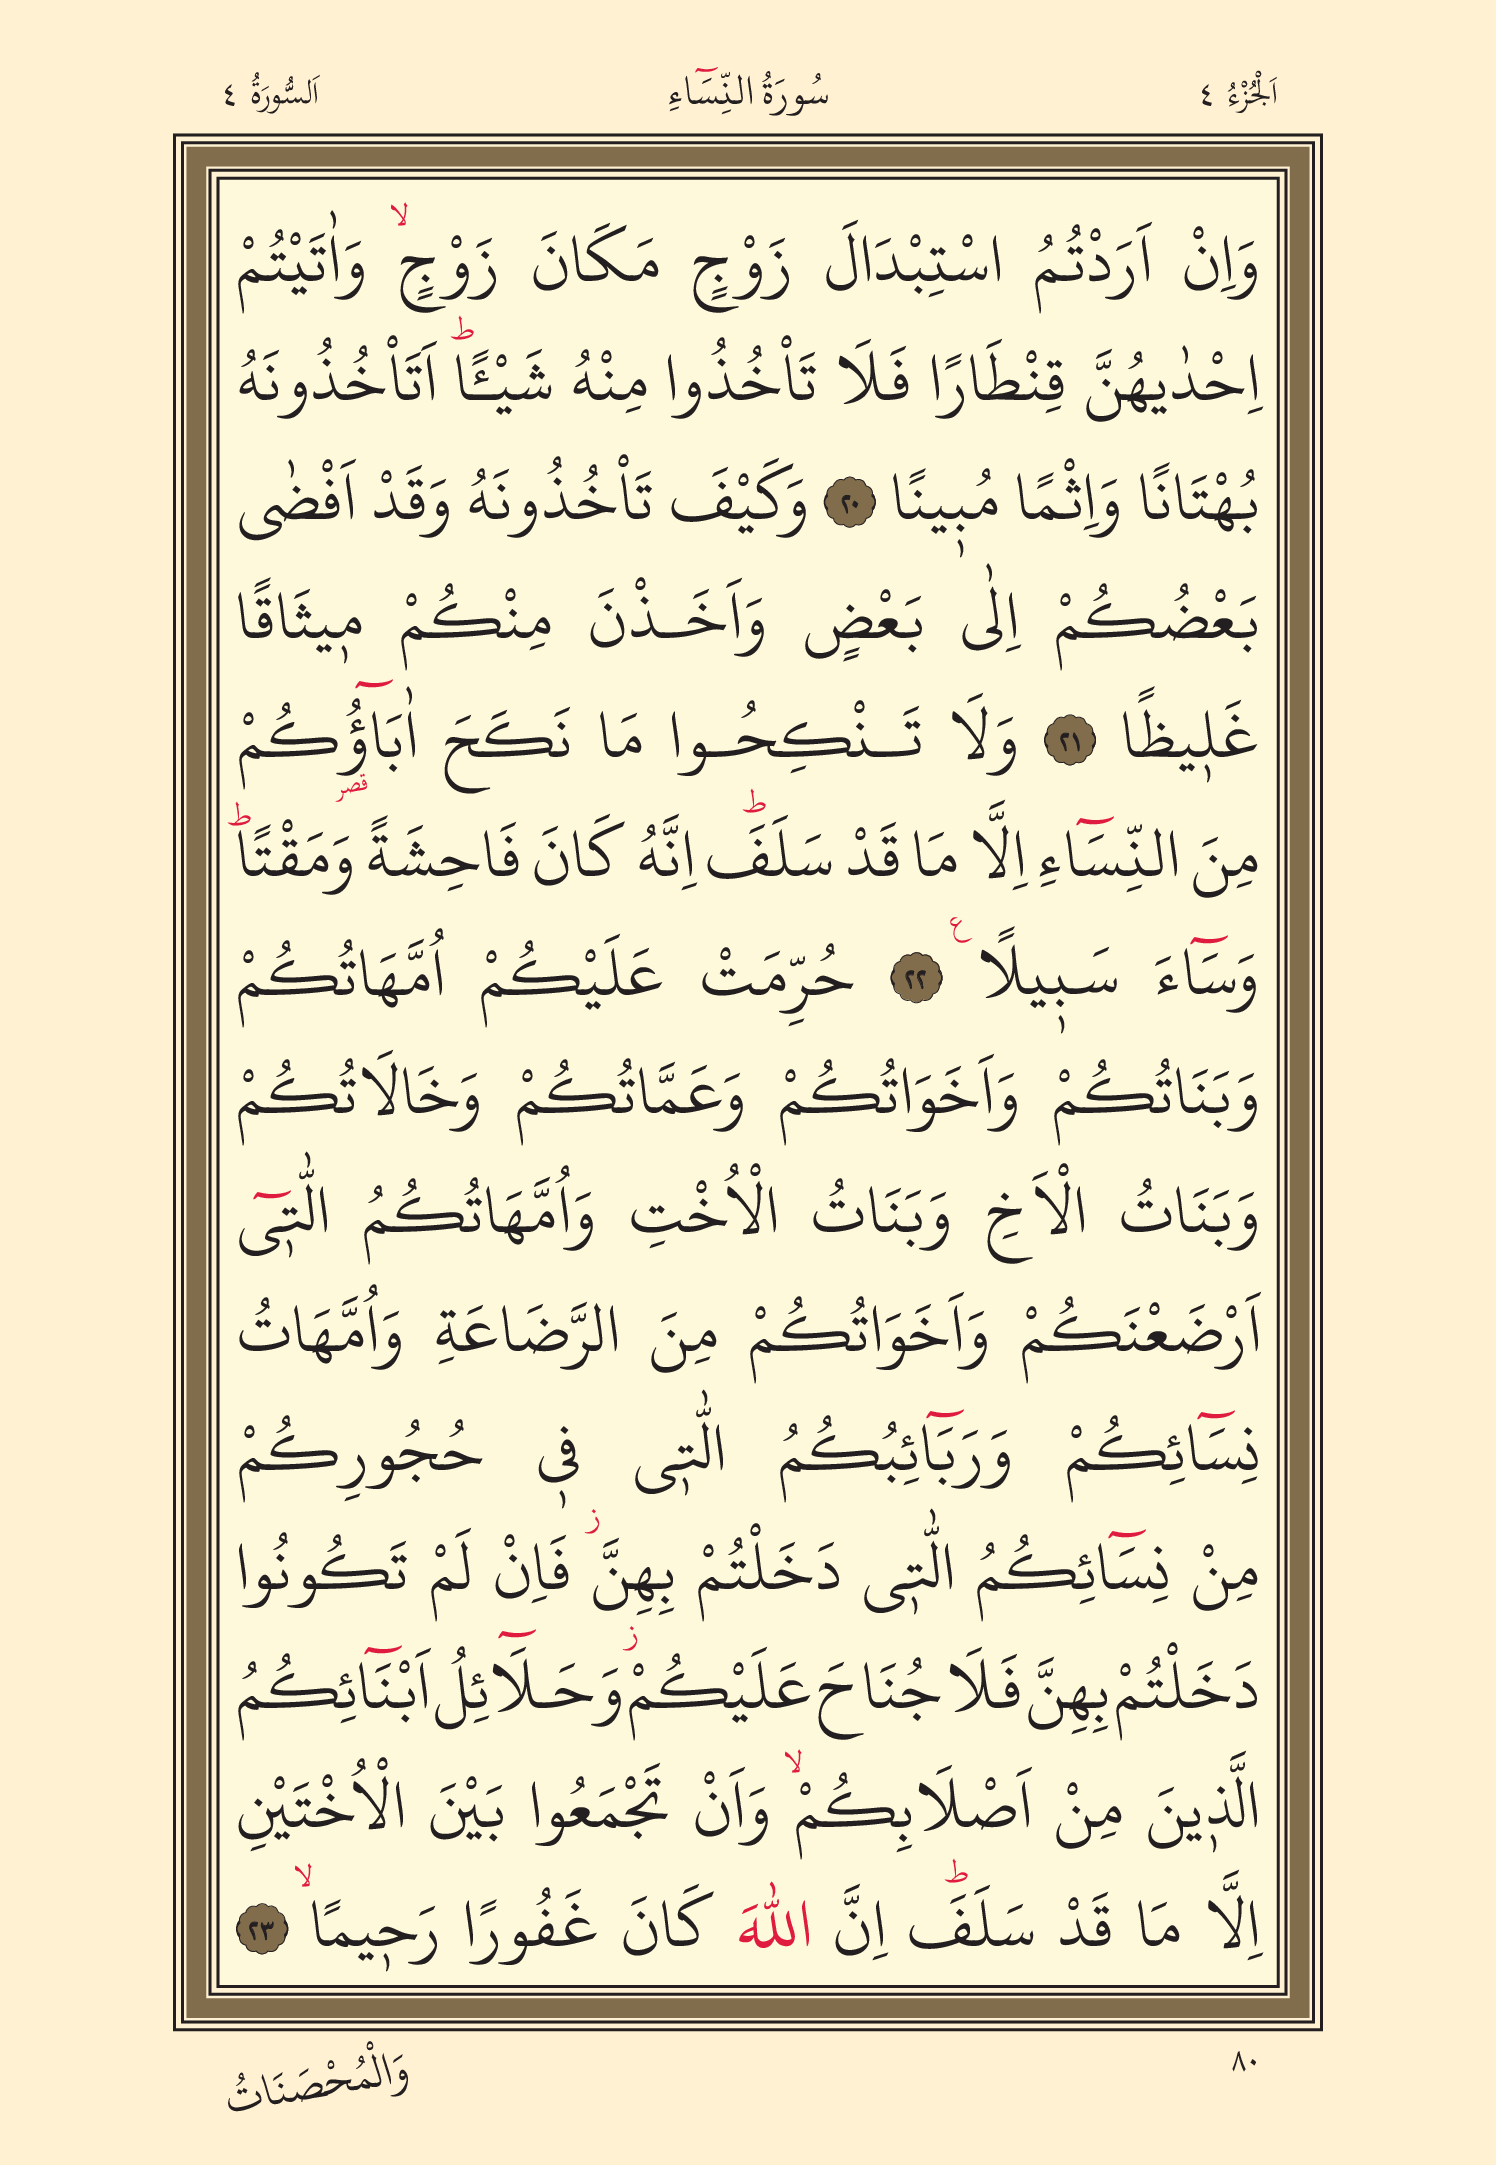 اَلْجُزْءُ ٤ سُورَةُ النِّسَٓاءِ اَلسُّورَةُ ٤
وَاِنْ اَرَدْتُمُ اسْتِبْدَالَ زَوْجٍ مَكَانَ زَوْجٍۙ وَاٰتَيْتُمْ
اِحْدٰيهُنَّ قِنْطَارًا فَلَا تَأْخُذُوا مِنْهُ شَيْـًٔاۜ اَتَأْخُذُونَهُ
بُهْتَانًا وَاِثْمًا مُب۪ينًا ﴿٢٠﴾ وَكَيْفَ تَأْخُذُونَهُ وَقَدْ اَفْضٰى
بَعْضُكُمْ اِلٰى بَعْضٍ وَاَخَذْنَ مِنْكُمْ م۪يثَاقًا
غَل۪يظًا ﴿٢١﴾ وَلَا تَنْكِحُوا مَا نَكَحَ اٰبَٓاؤُ۬كُمْ
قصر
مِنَ النِّسَٓاءِ اِلَّا مَا قَدْ سَلَفَۜ اِنَّهُ كَانَ فَاحِشَةً وَمَقْتًاۜ
وَسَٓاءَ سَب۪يلًا۟ ﴿٢٢﴾ حُرِّمَتْ عَلَيْكُمْ اُمَّهَاتُكُمْ
وَبَنَاتُكُمْ وَاَخَوَاتُكُمْ وَعَمَّاتُكُمْ وَخَالَاتُكُمْ
وَبَنَاتُ الْاَخِ وَبَنَاتُ الْاُخْتِ وَاُمَّهَاتُكُمُ الّٰت۪ٓى
اَرْضَعْنَكُمْ وَاَخَوَاتُكُمْ مِنَ الرَّضَاعَةِ وَاُمَّهَاتُ
نِسَٓائِكُمْ وَرَبَٓائِبُكُمُ الّٰت۪ى ف۪ى حُجُورِكُمْ
مِنْ نِسَٓائِكُمُ الّٰت۪ى دَخَلْتُمْ بِهِنَّۘ فَاِنْ لَمْ تَكُونُوا
دَخَلْتُمْ بِهِنَّ فَلَا جُنَاحَ عَلَيْكُمْۘ وَحَلَٓائِلُ اَبْنَٓائِكُمُ
الَّذ۪ينَ مِنْ اَصْلَابِكُمْۙ وَاَنْ تَجْمَعُوا بَيْنَ الْاُخْتَيْنِ
اِلَّا مَا قَدْ سَلَفَۜ اِنَّ اللّٰهَ كَانَ غَفُورًا رَح۪يمًاۙ ﴿٢٣﴾
٨٠
وَالْمُحْصَنَاتُ